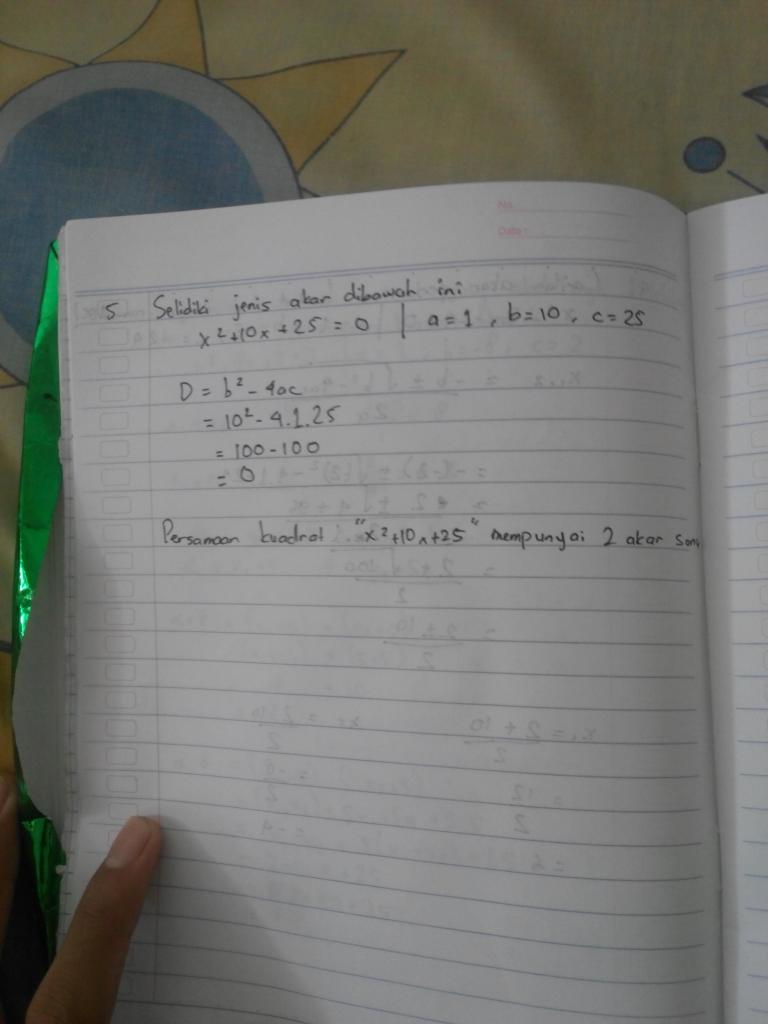 No.
Date:
5 Selidiki jenis akar dibawah ini
x²+10x+25 = 0 | a=1, b=10, c=25
D = b² - 4ac
= 10² - 4.1.25
= 100-100
= 0
Persamaan kuadrat "x²+10x+25" mempunyai 2 akar